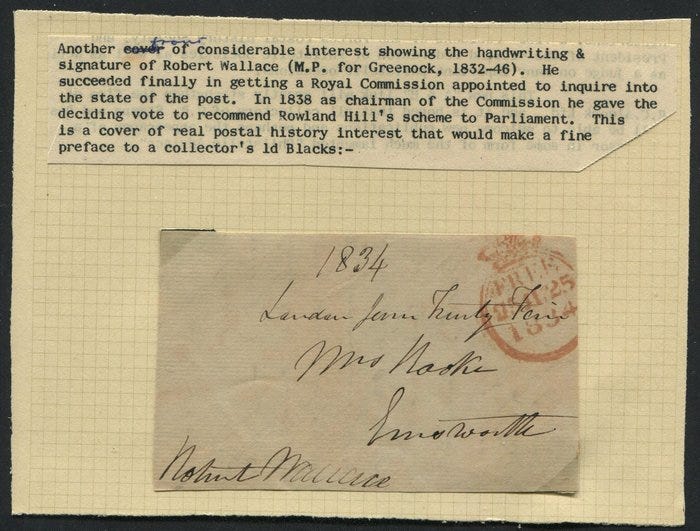 Another cover front of considerable interest showing the handwriting &
signature of Robert Wallace (M.P. for Greenock, 1832-46). He
succeeded finally in getting a Royal Commission appointed to inquire into
the state of the post. In 1838 as chairman of the Commission he gave the
deciding vote to recommend Rowland Hill's scheme to Parliament. This
is a cover of real postal history interest that would make a fine
preface to a collector's 1d Blacks:-
1834
FREE
25
1834
London
Mrs
Emsworth
Robert Wallace